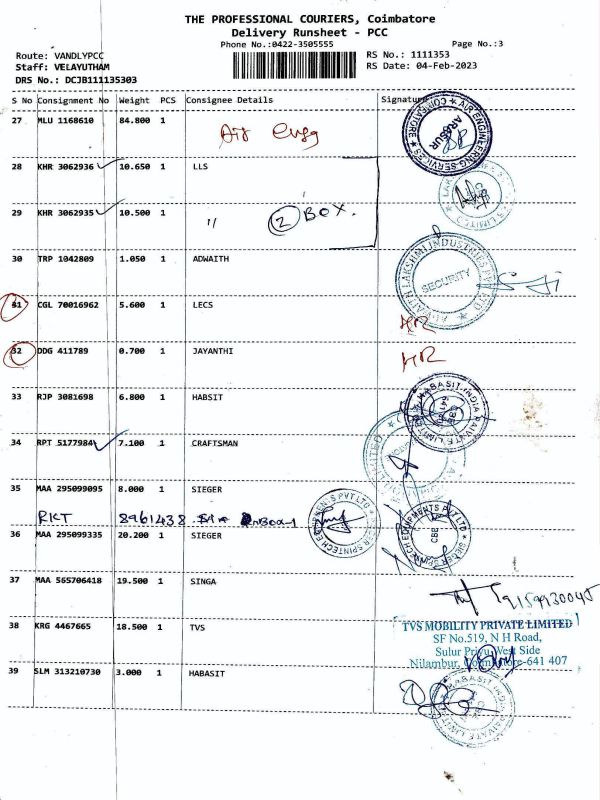 THE PROFESSIONAL COURIERS, Coimbatore
Delivery Runsheet - PCC
Phone No.:0422-3505555
Page No.:3
Route: VANDLYPCC
Staff: VELAYUTHAM
DRS No.: DCJB111135303
RS No.: 1111353
RS Date: 04-Feb-2023
S No Consignment No Weight PCS Consignee Details Signature
27 MLU 1168610 84.800 1 Air engg
AIR ENGINEERING SERVICES COIMBATORE
ARASUR
28 KHR 3062936 10.650 1 LLS
29 KHR 3062935 10.500 1 " 2 BOX.
30 TRP 1042809 1.050 1 ADWAITH
LAKSHMI INDUSTRIES PVT LTD
SECURITY
31 CGL 70016962 5.600 1 LECS HR
32 DDG 411789 0.700 1 JAYANTHI HR
33 RJP 3081698 6.800 1 HABSIT
HABASIT INDIA PRIVATE LIMITED
34 RPT 5177984 7.100 1 CRAFTSMAN
35 MAA 295099095 8.000 1 SIEGER
RKT 8961438
36 MAA 295099335 20.200 1 SIEGER
SIEGER SPINTECH EQUIPMENTS PVT LTD
CBE
37 MAA 565706418 19.500 1 SINGA
9159930045
38 KRG 4467665 18.500 1 TVS
TVS MOBILITY PRIVATE LIMITED
SF No.519, N H Road,
Sulur Pirivu, West Side
Nilambur, Coimbatore-641 407
39 SLM 313210730 3.000 1 HABASIT
HABASIT INDIA PRIVATE LIMITED